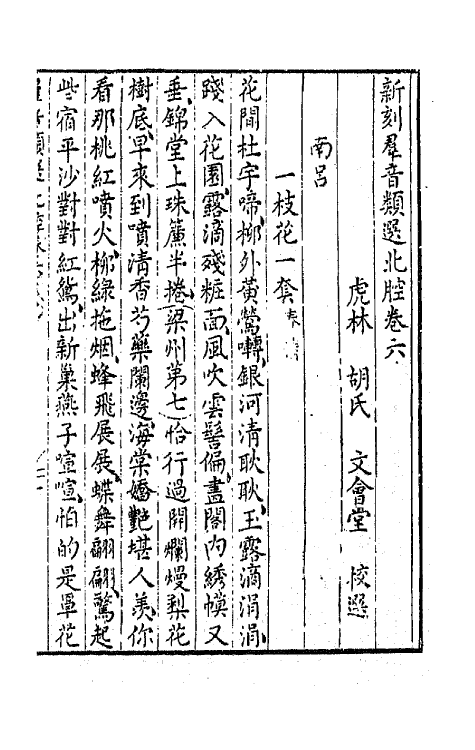 新刻羣音類選北腔卷六
虎林 胡氏 文會堂 校選
南呂
一枝花一套
花間杜宇啼柳外黃鶯囀銀河清耿耿玉露滴涓涓
踐入花園露滴殘粧面風吹雲髻偏畫閣內綉幙又
垂錦堂上珠簾半捲梁州第七恰行過開爛熳梨花
樹底早來到噴清香芍藥闌邊海棠嬌艷堪人羨你
看那桃紅噴火柳綠拖烟蜂飛展展蝶舞翩翩驚起
些宿平沙對對紅鴛出新巢燕子喧喧怕的是罩花